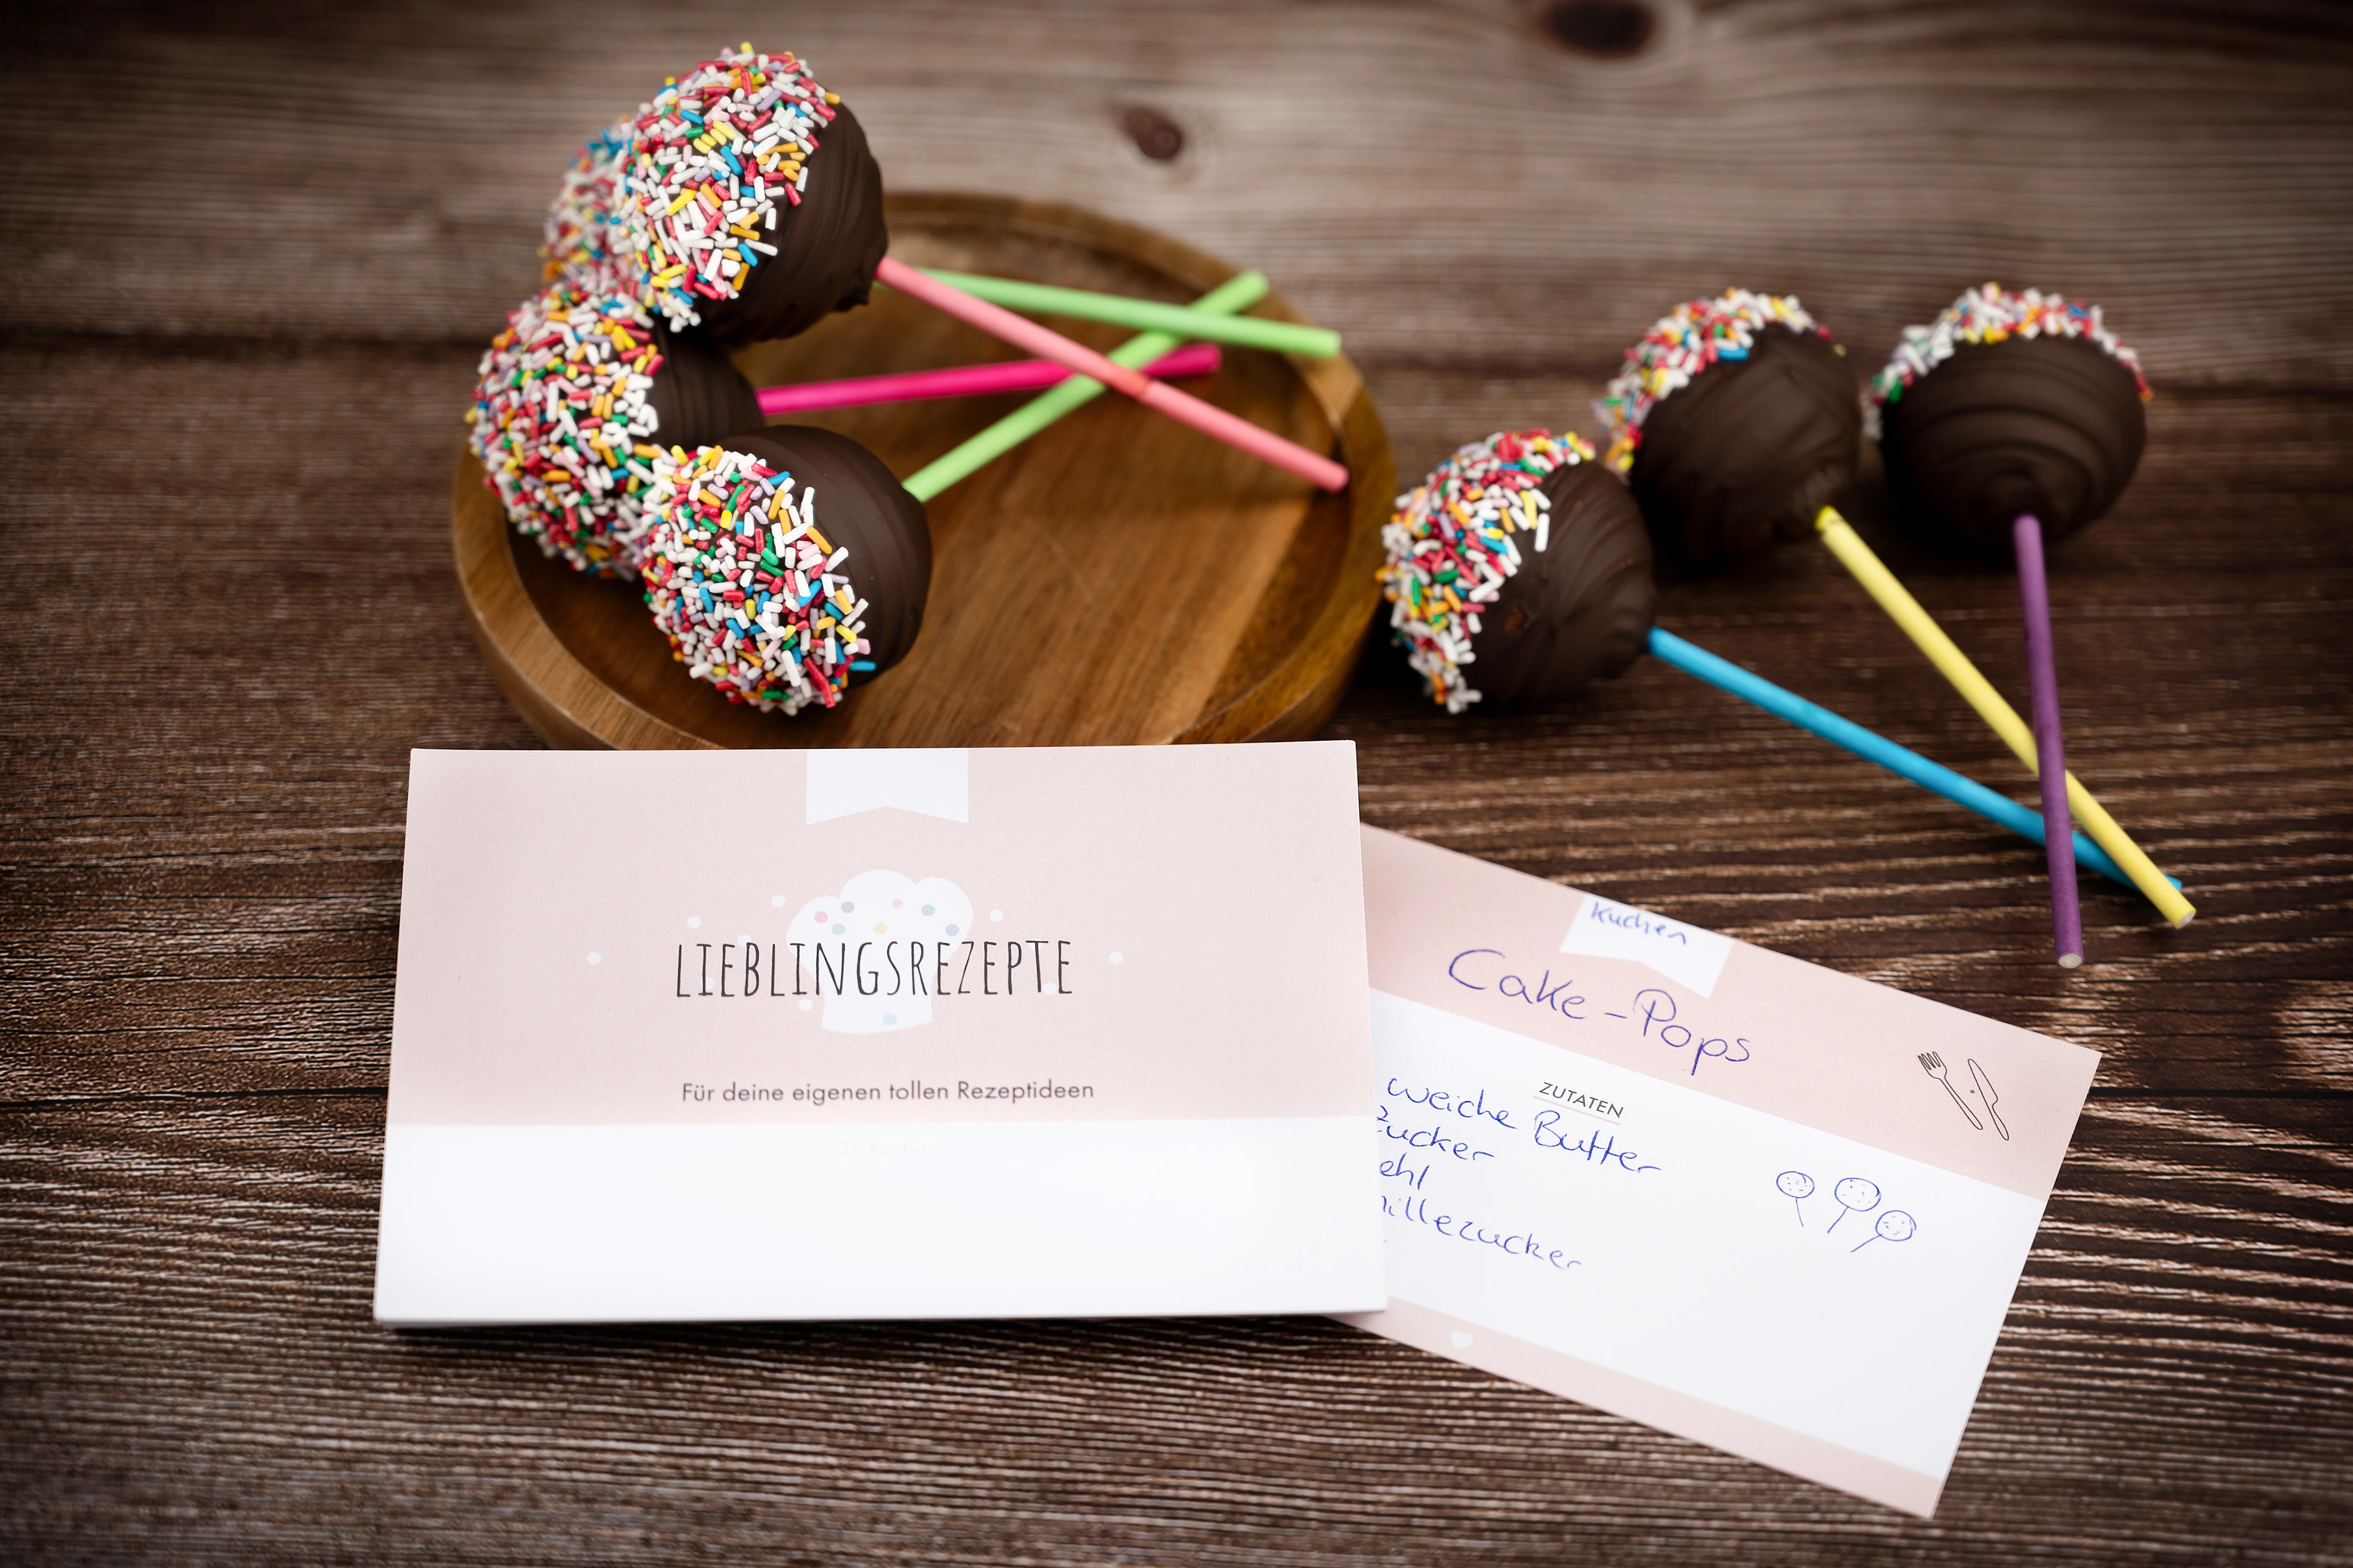 LIEBLINGSREZEPTE
Für deine eigenen tollen Rezeptideen
Kuchen
Cake-Pops
ZUTATEN
weiche Butter
Zucker
ehl
illezucker